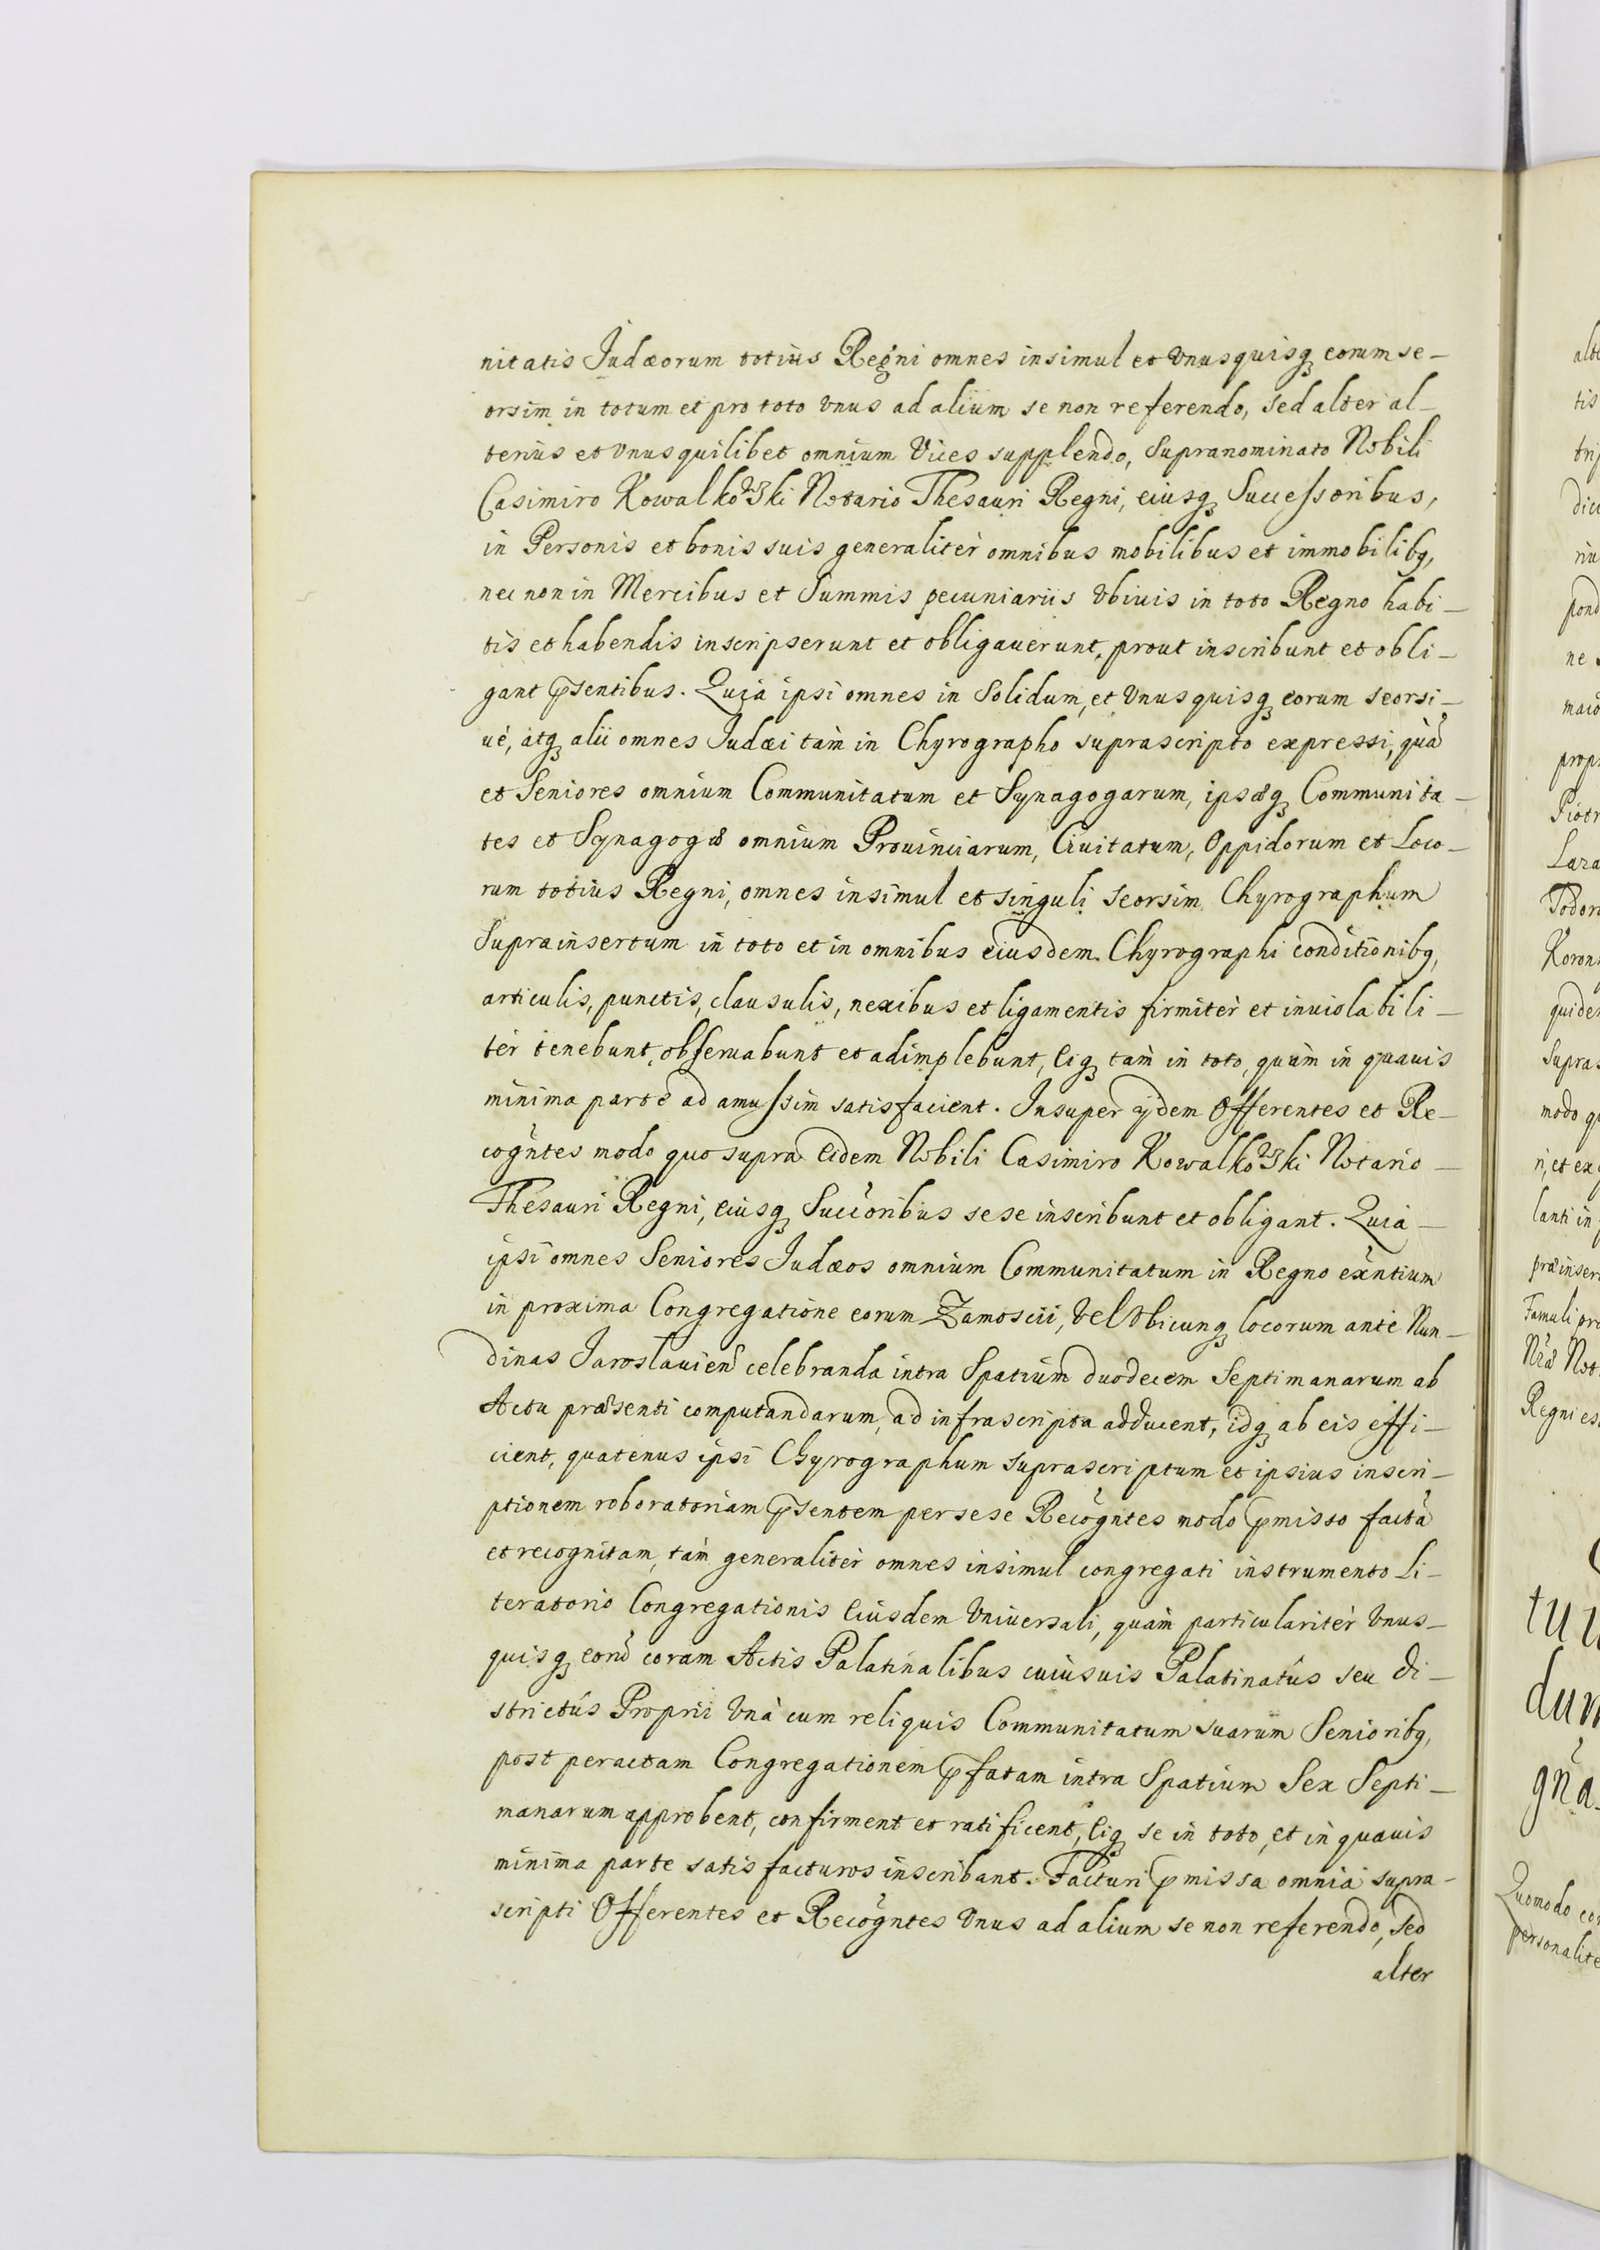 nitatis Judæorum totius Regni omnes insimul et Vnusquisq3 eorum se–
orsim in totum et pro toto Vnus ad alium se non referendo, sed alter al–
terius et Vnusquilibet omnium Vices supplendo, Supranominato Nobili
Casimiro Kowalkowski Notario Thesauri Regni, eiusq3 Successoribus,
in Personis et bonis suis generalitèr omnibus mobilibus et immobilibq,
nec non in Mercibus et Summis pecuniariis Vbiuis in toto Regno habi–
tis et habendis inscripserunt et obligauerunt, prout inscribunt et obli–
gant p̄sentibus. Quia ipsi omnes in Solidum, et Vnusquisq3 eorum seorsi–
uè, atq3 alii omnes Judæi tàm in Chyrographo suprascripto expressi, quã
et Seniores omnium Communitatum et Synagogarum, ipsæq3 Communita–
tes et Synagogæ omnium Prouinciarum, Ciuitatum, Oppidorum et Loco–
rum totius Regni, omnes insimul et singuli seorsim Chyrographum
Suprainsertum in toto et in omnibus eiusdem Chyrographi conditionibq,
articulis, punctis, clausulis, nexibus et ligamentis firmitèr et inuiolabili–
tèr tenebunt, obseruabunt et adimplebunt, eiq3 tàm in toto, quàm in quauis
minima parte ad amussim satisfacient. Insuper ijdem Offerentes et Re–
cogñtes modo quo supra eidem Nobili Casimiro Kowalkowski Notario –
Thesauri Regni, eiusq3 Succõribus sese inscribunt et obligant. Quia –
ipsi omnes Seniores Judæos omnium Communitatum in Regno exñtium
in proxima Congregatione eorum Zamoscii, Vel Vbicunq3 locorum antè Nun–
dinas Jaroslauieñ celebranda intra Spatium duodecem Septimanarum ab
Actu præsenti computandarum, ad infrascripta adducent, idq3 ab eis effi–
cient, quatenus ipsi Chyrographum suprascriptum et ipsius inscri–
ptionem roboratoriam p̄sentem per sese Recogñtes modo p̄misso factã
et recognitam, tàm generalitèr omnes insimul congregati instrumento Li–
teratorio Congregationis eiusdem Vniuersali, quàm particularitèr Vnus–
quisq3 eorũ coram Actis Palatinalibus cuiusuis Palatinatûs seu Di–
strictûs Proprii Vnà cum reliquis Communitatum suarum Senioribq,
post peractam Congregationem p̄fatam intra Spatium Sex Septi–
manarum approbent, confirment et ratificent, eiq3 se in toto, et in quauis
minima parte satisfacturos inscribant. Facturi p̄missa omnia supra–
scripti Offerentes et Recogñtes Vnus ad alium se non referendo, sed
alter